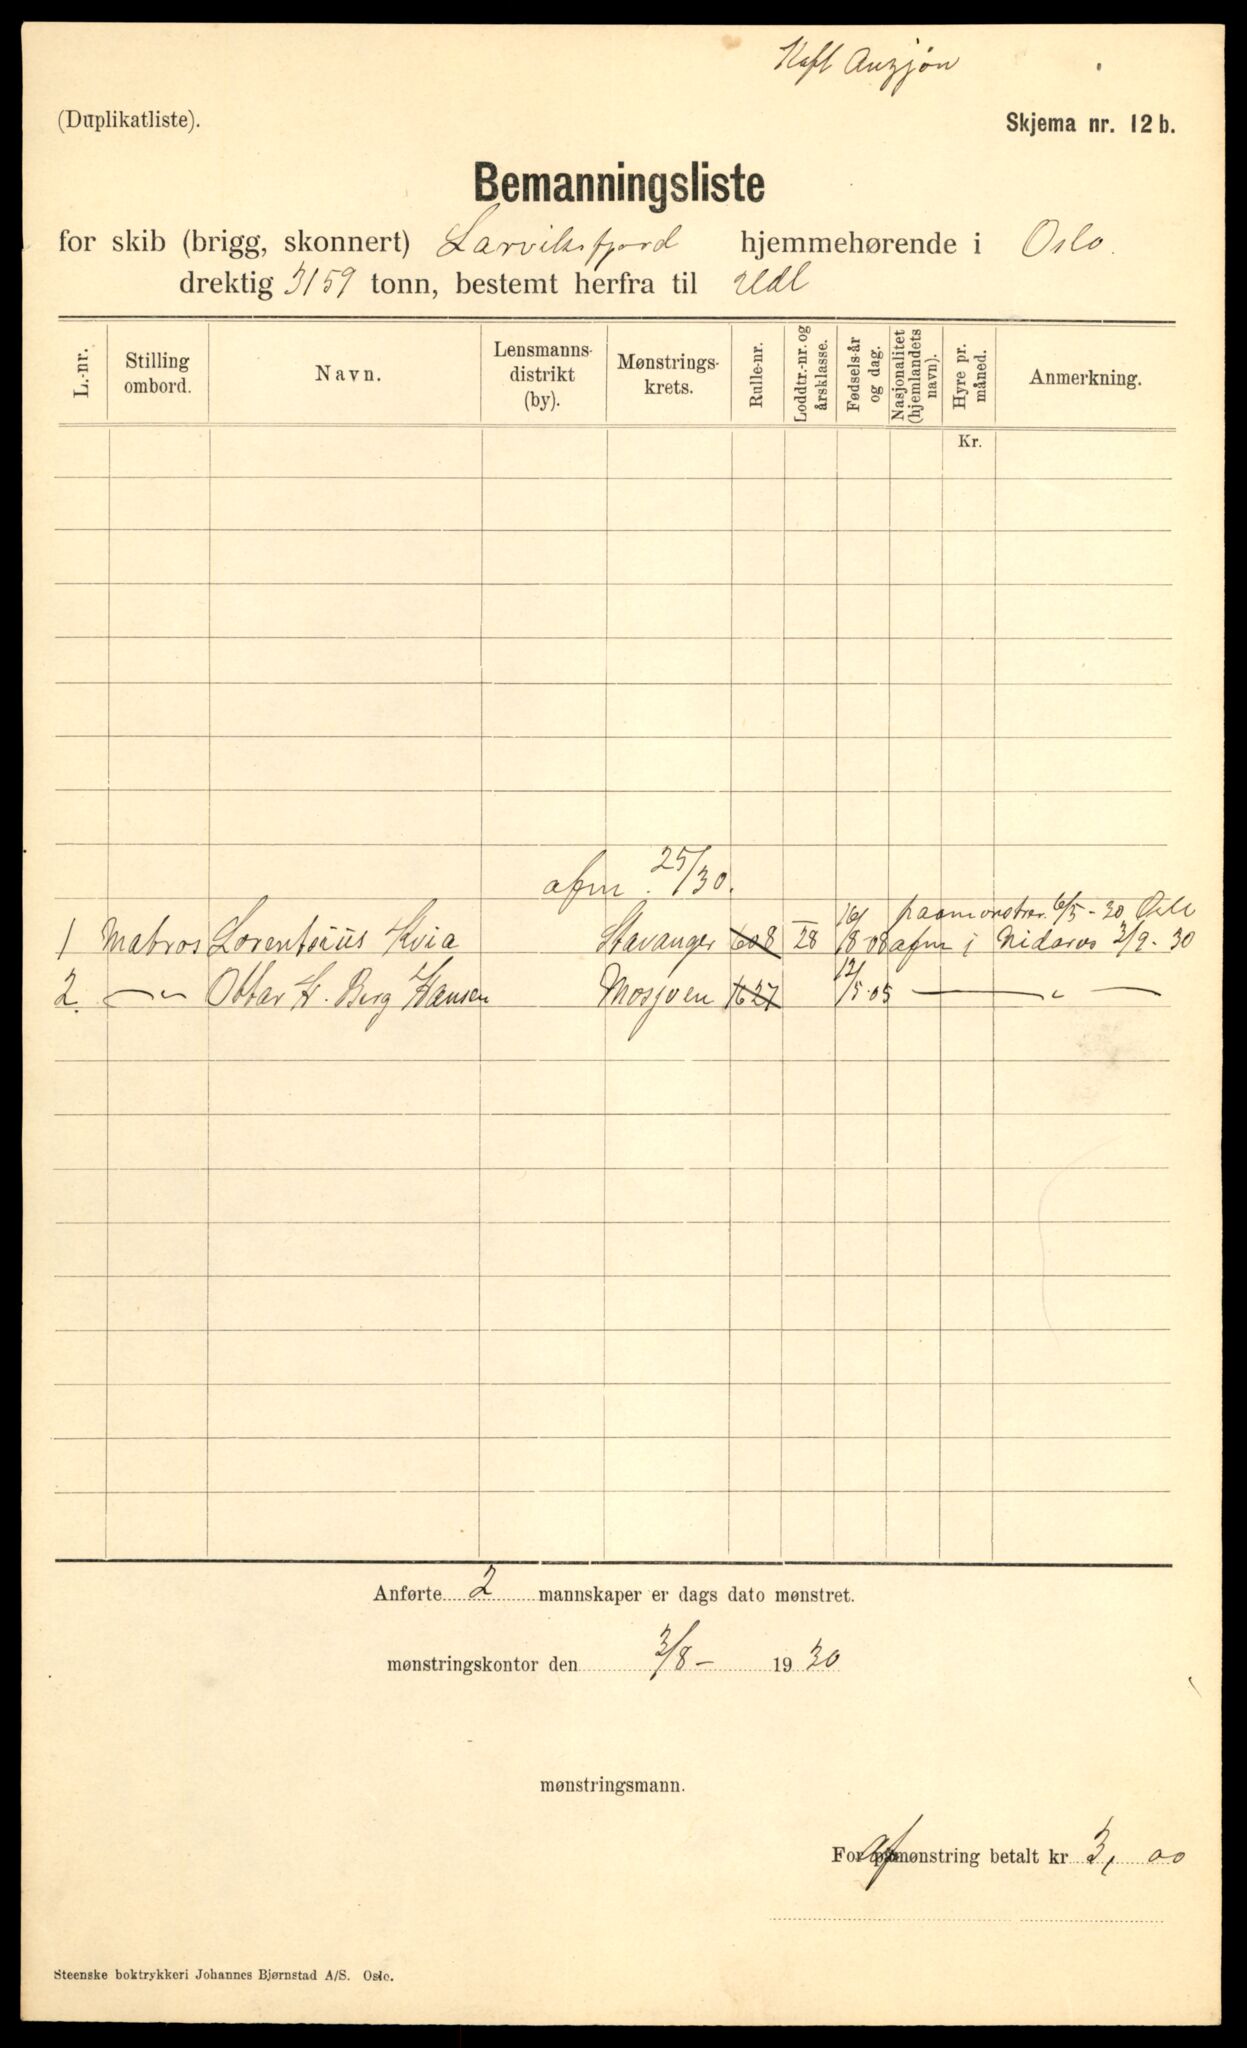 Kapt Auzjøn
(Duplikatliste).
Skjema nr. 12 b.
Bemanningsliste
for skib (brigg, skonnert) Larviksfjord hjemmehørende i Oslo.
drektig 3159 tonn, bestemt herfra til Udl
L.-nr. Stilling ombord. Navn. Lensmanns-distrikt (by). Mønstrings-krets. Rulle-nr. Loddtr.-nr. og årsklasse. Fødsels-år og dag. Nasjonalitet (hjemlandets navn). Hyre pr. måned. Anmerkning.
Kr.
afm. 25/30.
1 Matros Lorentsius Kvia Stavanger 608 — 28 16/8-08 paamønstrer. 6/5-30 Oslo
afm i Nidaros 2/9-30
2. —"— Ottar H. Berg Hansen Mosjøen 1627 12/5.05 —"—
Anførte 2 mannskaper er dags dato mønstret.
mønstringskontor den 3/8- 1930
mønstringsmann.
For afmønstring betalt kr 3,00
Steenske boktrykkeri Johannes Bjørnstad A/S. Oslo.